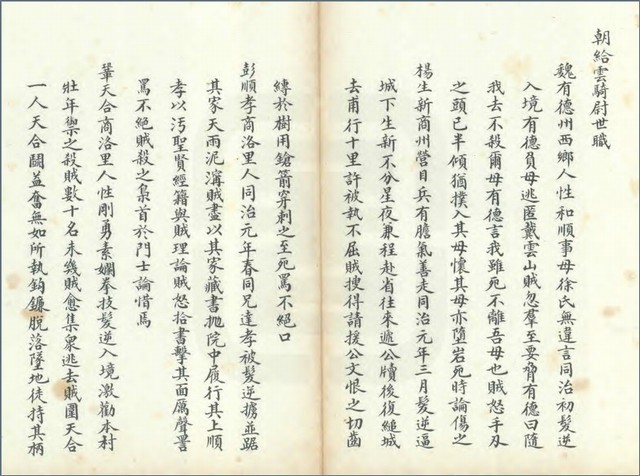 朝給雲騎尉世職
魏有德州西鄉人性和順事母徐氏無違言同治初髮逆
入境有德負母逃匿戴雲山賊忽羣至要脅有德曰隨
我去不殺爾母有德言我雖死不離吾母也賊怒手刃
之頭已半傾猶撲入其母懷其母亦墮岩死時論傷之
楊生新商州營目兵有膽氣善走同治元年三月髮逆逼
城下生新不分星夜兼程赴省往來遞公牘後復縋城
去甫行十里許被執不屈賊搜得請援公文恨之切齒
縛於樹用鎗箭穿刺之至死罵不絕口
彭順孝商洛里人同治元年春同兄達孝被髮逆擄並踞
其家天雨泥濘賊盡以其家藏書拋院中履行其上順
孝以汚聖賢經籍與賊理論賊怒拾書擊其面厲聲詈
罵不絕賊殺之梟首於門士論惜焉
鞏天合商洛里人性剛勇素嫻拳技髮逆入境激勸本村
壯年禦之殺賊數十名未幾賊愈集衆逃去賊圍天合
一人天合鬭益奮無如所執鈎鐮脫落墜地徒持其柄